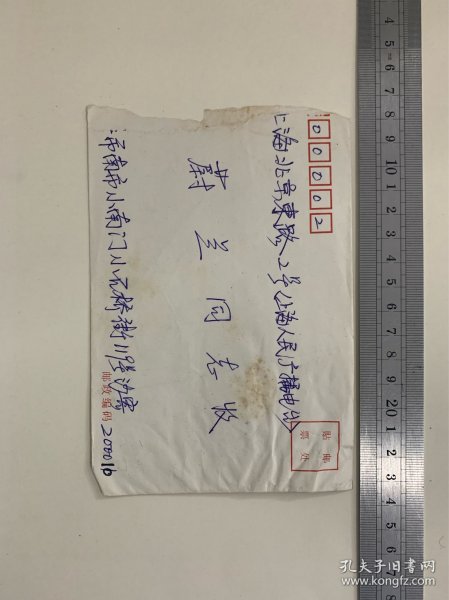 00002
上海北京東路2号(上海人民广播电台)
贴邮
票处
蔚兰同志收
市南市小南门小石桥街
邮政编码 200010
4 5 6 7 8 9 10 1 2 3 4 5 6 7 8 9 20 1 2 3 4 5 6 7 8
孔夫子旧书网
www.kongfz.com